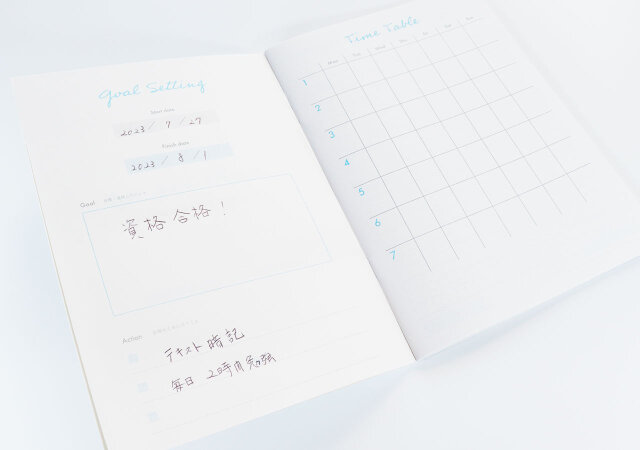 Goal Setting
Start date
2023 / 7 / 27
Finish date
2023 / 8 / 1
Goal
資格合格！
Action
テキスト暗記
毎日 2時間勉強
Time Table
Mon Tue Wed Thu Fri Sat Sun
1
2
3
4
5
6
7